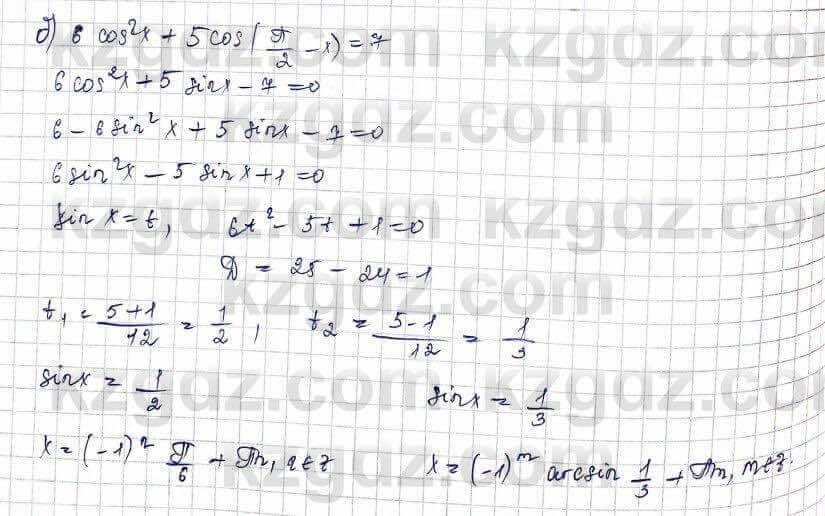 б) 6 cos²x + 5 cos(π/2 - x) = 7
6 cos²x + 5 sin x - 7 = 0
6 - 6 sin²x + 5 sin x - 7 = 0
6 sin²x - 5 sin x + 1 = 0
sin x = t, 6t² - 5t + 1 = 0
D = 25 - 24 = 1
t₁ = (5+1)/12 = 1/2, t₂ = (5-1)/12 = 1/3
sin x = 1/2 sin x = 1/3
x = (-1)ⁿ π/6 + πn, n∈z x = (-1)ᵐ arcsin 1/3 + πm, m∈z.
kzgdz.com kzgdz.com
kzgdz.com kzgdz.com
kzgdz.com
kzgdz.com kzgdz.com
kzgdz.com